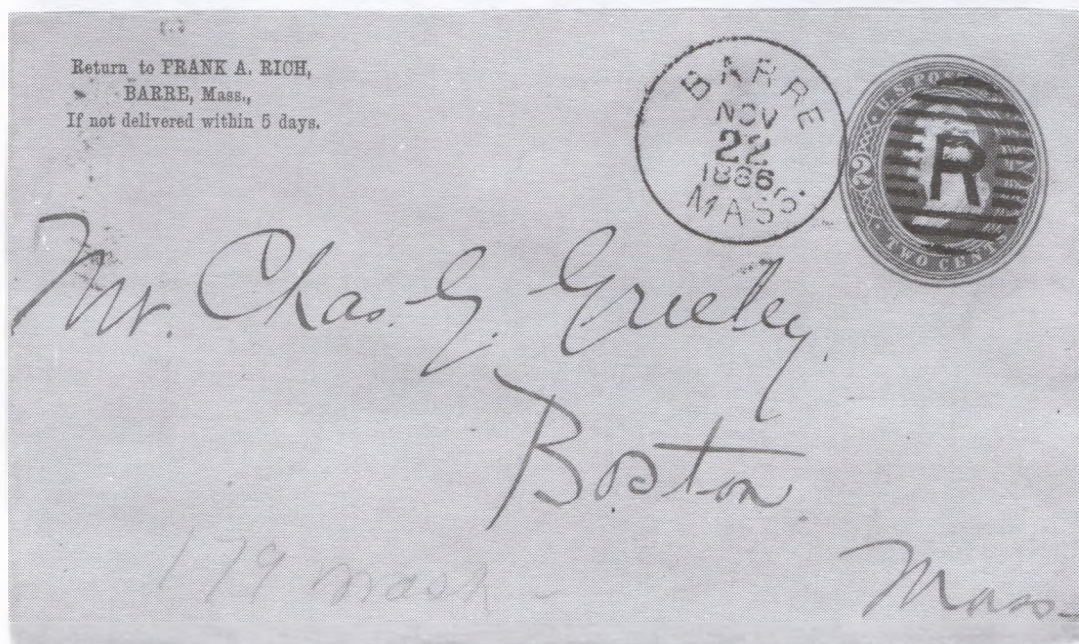 Return to FRANK A. RICH,
BARRE, Mass.,
If not delivered within 5 days.
BARRE
NOV
22
1886
MASS.
U.S. POS
2
R
TWO CENTS
Mr. Chas. G.
Boston.
Mass-
179 Wash-